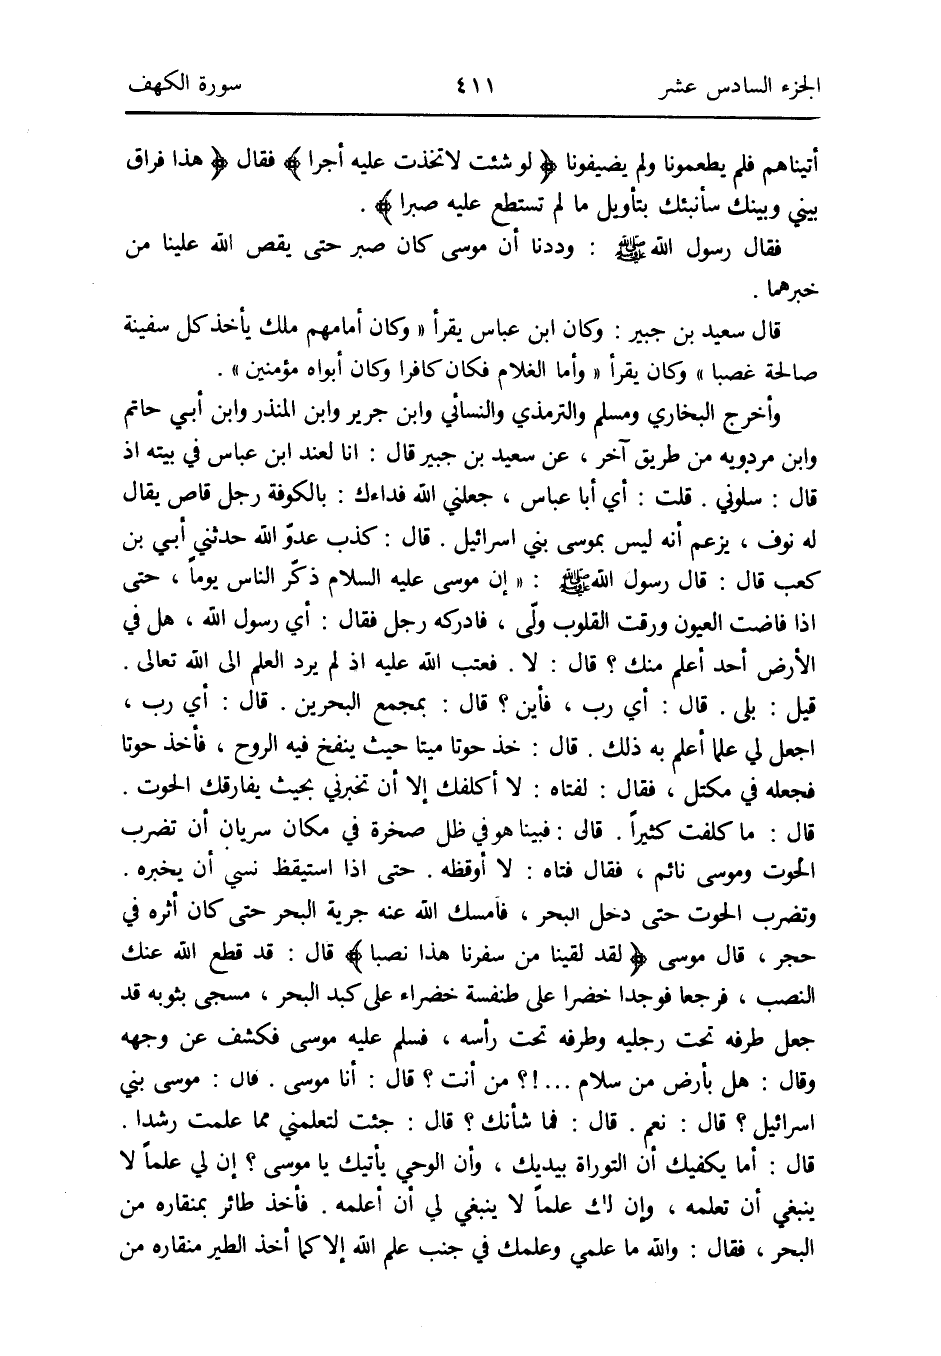 الجزء السادس عشر ٤١١ سورة الكهف
أتيناهم فلم يطعمونا ولم يضيفونا ﴿ لو شئت لاتخذت عليه أجرا ﴾ فقال ﴿ هذا فراق
بيني وبينك سأنبئك بتأويل ما لم تستطع عليه صبرا ﴾ .
فقال رسول الله ﷺ : وددنا أن موسى كان صبر حتى يقص الله علينا من
خبرهما .
قال سعيد بن جبير : وكان ابن عباس يقرأ « وكان أمامهم ملك يأخذ كل سفينة
صالحة غصبا » وكان يقرأ « وأما الغلام فكان كافرا وكان أبواه مؤمنين » .
وأخرج البخاري ومسلم والترمذي والنسائي وابن جرير وابن المنذر وابن أبي حاتم
وابن مردويه من طريق آخر ، عن سعيد بن جبير قال : انا لعند ابن عباس في بيته اذ
قال : سلوني . قلت : أي أبا عباس ، جعلني الله فداءك : بالكوفة رجل قاص يقال
له نوف ، يزعم أنه ليس بموسى بني اسرائيل . قال : كذب عدوّ الله حدثني أبي بن
كعب قال : قال رسول الله ﷺ : « إن موسى عليه السلام ذكّر الناس يوماً ، حتى
اذا فاضت العيون ورقت القلوب ولّى ، فادركه رجل فقال : أي رسول الله ، هل في
الأرض أحد أعلم منك ؟ قال : لا . فعتب الله عليه اذ لم يرد العلم الى الله تعالى .
قيل : بلى . قال : أي رب ، فأين ؟ قال : بمجمع البحرين . قال : أي رب ،
اجعل لي علما أعلم به ذلك . قال : خذ حوتا ميتا حيث ينفخ فيه الروح ، فأخذ حوتا
فجعله في مكتل ، فقال : لفتاه : لا أكلفك إلا أن تخبرني بحيث يفارقك الحوت .
قال : ما كلفت كثيراً . قال : فبينا هو في ظل صخرة في مكان سريان أن تضرب
الحوت وموسى نائم ، فقال فتاه : لا أوقظه . حتى اذا استيقظ نسي أن يخبره .
وتضرب الحوت حتى دخل البحر ، فأمسك الله عنه جرية البحر حتى كان أثره في
حجر ، قال موسى ﴿ لقد لقينا من سفرنا هذا نصبا ﴾ قال : قد قطع الله عنك
النصب ، فرجعا فوجدا خضرا على طنفسة خضراء على كبد البحر ، مسجى بثوبه قد
جعل طرفه تحت رجليه وطرفه تحت رأسه ، فسلم عليه موسى فكشف عن وجهه
وقال : هل بأرض من سلام ...!؟ من أنت ؟ قال : أنا موسى . قال : موسى بني
اسرائيل ؟ قال : نعم . قال : فما شأنك ؟ قال : جئت لتعلمني مما علمت رشدا .
قال : أما يكفيك أن التوراة بيديك ، وأن الوحي يأتيك يا موسى ؟ إن لي علماً لا
ينبغي أن تعلمه ، وإن لك علماً لا ينبغي لي أن أعلمه . فأخذ طائر بمنقاره من
البحر ، فقال : والله ما علمي وعلمك في جنب علم الله إلا كما أخذ الطير منقاره من